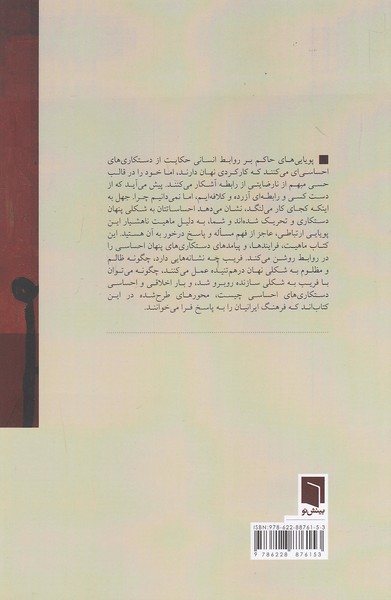 پویایی‌های حاکم بر روابط انسانی حکایت از دستکاری‌های
احساسی‌ای می‌کنند که کارکردی نهان دارند، اما خود را در قالب
حسی مبهم از نارضایتی از رابطه آشکار می‌کنند. پیش می‌آید که از
دست کسی و رابطه‌ای آزرده و کلافه‌ایم، اما نمی‌دانیم چرا. جهل به
اینکه کجای کار می‌لنگد، نشان می‌دهد احساساتتان به شکلی پنهان
دستکاری و تحریک شده‌اند و شما، به دلیل ماهیت ناهشیار این
پویایی ارتباطی، عاجز از فهم مسأله و پاسخ درخور به آن هستید. این
کتاب ماهیت، فرایندها، و پیامدهای دستکاری‌های پنهان احساسی را
در روابط روشن می‌کند. فریب چه نشانه‌هایی دارد، چگونه ظالم
و مظلوم به شکلی نهان درهم‌تنیده عمل می‌کنند، چگونه می‌توان
با فریب به شکلی سازنده روبرو شد، و بار اخلاقی و احساسی
دستکاری‌های احساسی چیست، محورهای طرح‌شده در این
کتاب‌اند که فرهنگ ایرانیان را به پاسخ فرا می‌خوانند.
بینش‌نو
ISBN: 978-622-88761-5-3
9 786228 876153